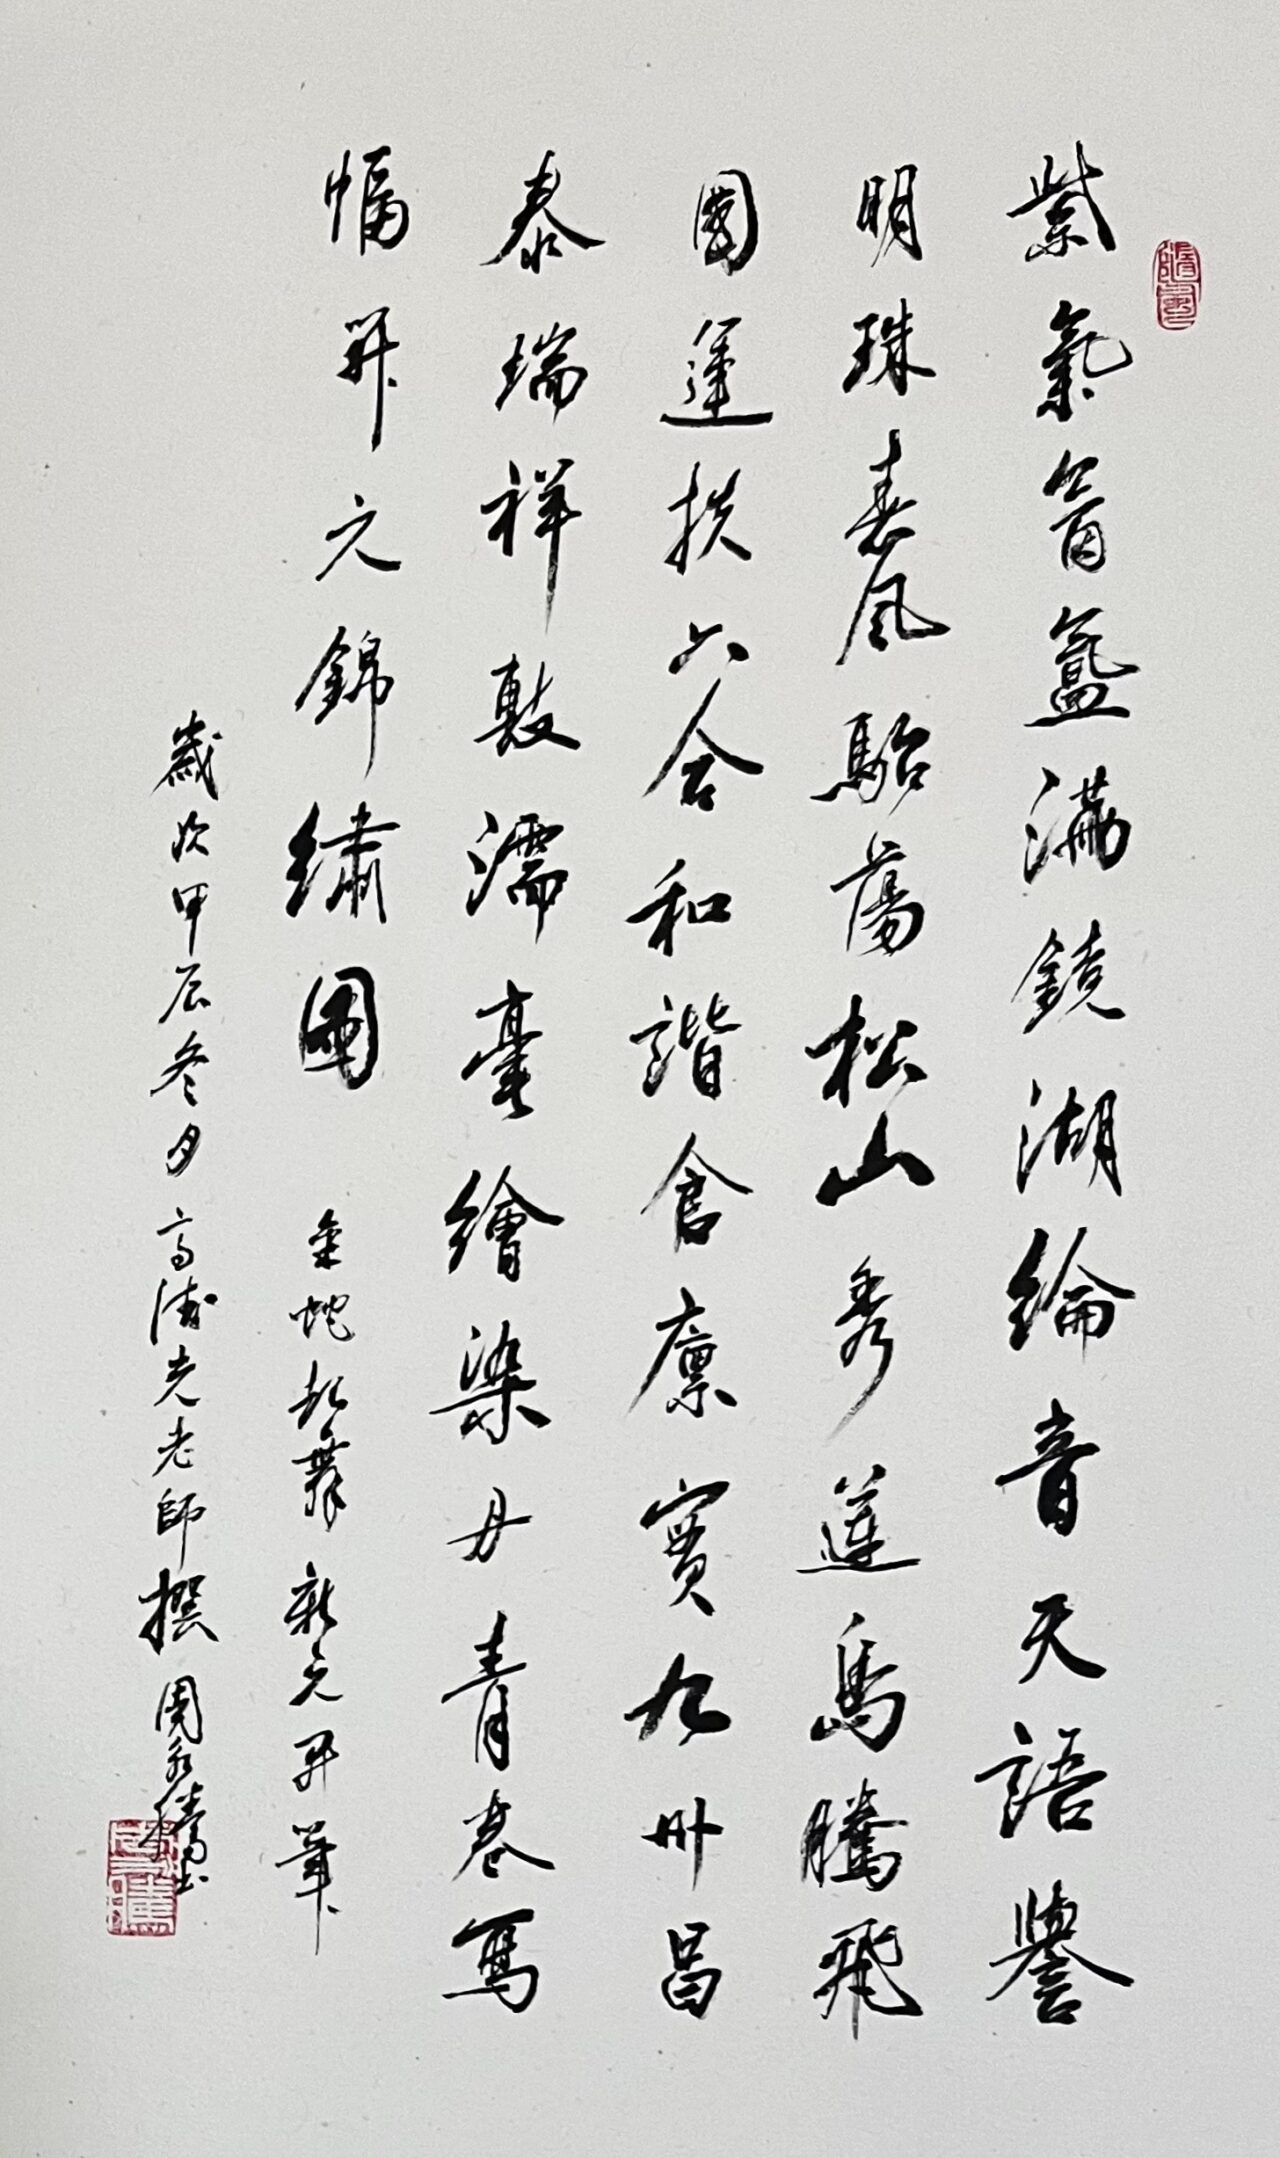 紫氣氤氳滿鏡湖綸音天語譽
明珠春風駘蕩松山秀蓮島騰飛
國運扶六合和諧倉廩實九州昌
泰瑞祥敷濡毫繪染丹青卷寫
幅開元錦繡圖 金蛇起舞新元開筆
歲次甲辰冬月高濤先老師撰 周永騰書